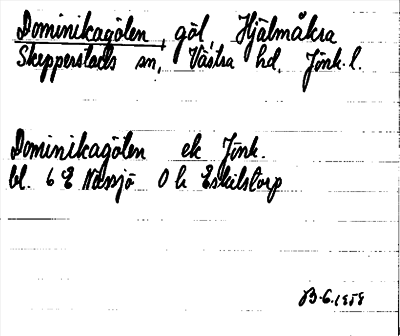 Dominikagölen, göl, Hjälmåkra
Skepperstads sn, Västra hd, Jönk. l.
Dominikagölen ek Jönk.
bl. 6 E Nässjö 0 h Eskilstorp